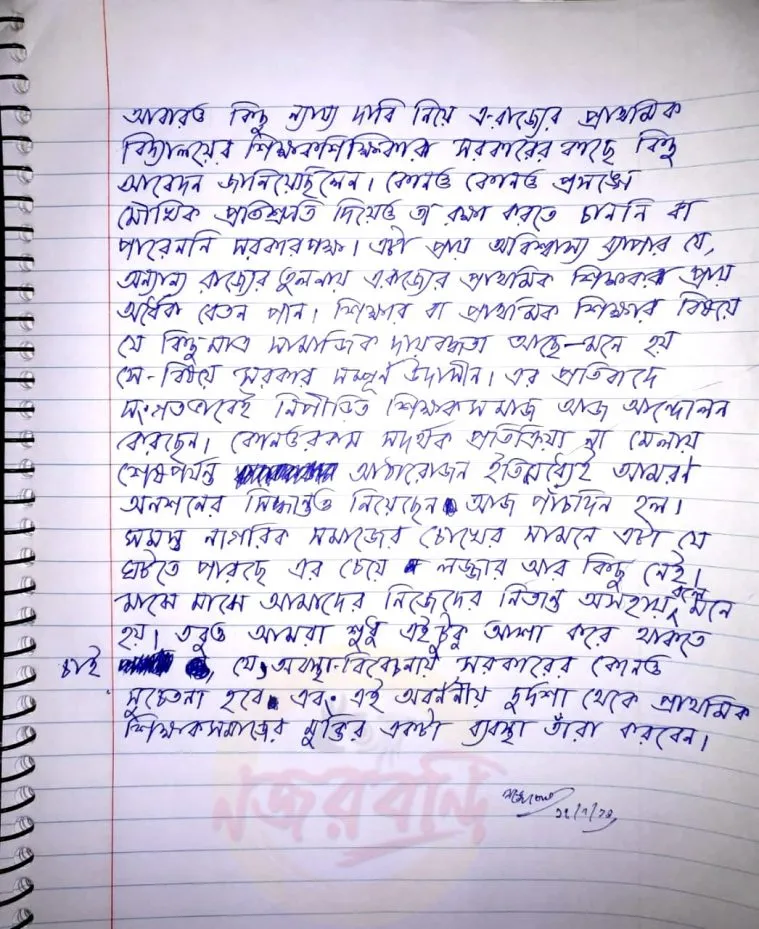 আবারও কিছু ন্যায্য দাবি নিয়ে এ-রাজ্যের প্রাথমিক
বিদ্যালয়ের শিক্ষকশিক্ষিকারা সরকারের কাছে কিছু
আবেদন জানিয়েছিলেন। কোনও কোনও প্রসঙ্গে
মৌখিক প্রতিশ্রুতি দিয়েও তা রক্ষা করতে চাননি বা
পারেননি সরকারপক্ষ। এটা প্রায় অবিশ্বাস্য ব্যাপার যে,
অন্যান্য রাজ্যের তুলনায় এরাজ্যের প্রাথমিক শিক্ষকরা প্রায়
অর্ধেক বেতন পান। শিক্ষার বা প্রাথমিক শিক্ষার বিষয়ে
যে কিছুমাত্র সামাজিক দায়বদ্ধতা আছে—মনে হয়
সে-বিষয়ে সরকার সম্পূর্ণ উদাসীন। এর প্রতিবাদে
সংগতভাবেই নিপীড়িত শিক্ষকসমাজ আজ আন্দোলন
করছেন। কোনওরকম সদর্থক প্রতিক্রিয়া না মেলায়
শেষপর্যন্ত আঠারোজন ইতিমধ্যেই আমরণ
অনশনের সিদ্ধান্তও নিয়েছেন আজ পাঁচদিন হল।
সমস্ত নাগরিক সমাজের চোখের সামনে এটা যে
ঘটতে পারছে এর চেয়ে লজ্জার আর কিছু নেই।
মাঝে মাঝে আমাদের নিজেদের নিতান্ত অসহায় বলে মনে
হয়। তবুও আমরা শুধু এইটুকু আশা করে থাকতে
চাই, যে, অবস্থা-বিবেচনায় সরকারের কোনও
সুচেতনা হবে এবং এই অবর্ণনীয় দুর্দশা থেকে প্রাথমিক
শিক্ষকসমাজের মুক্তির একটা ব্যবস্থা তাঁরা করবেন।
নজরবন্দি